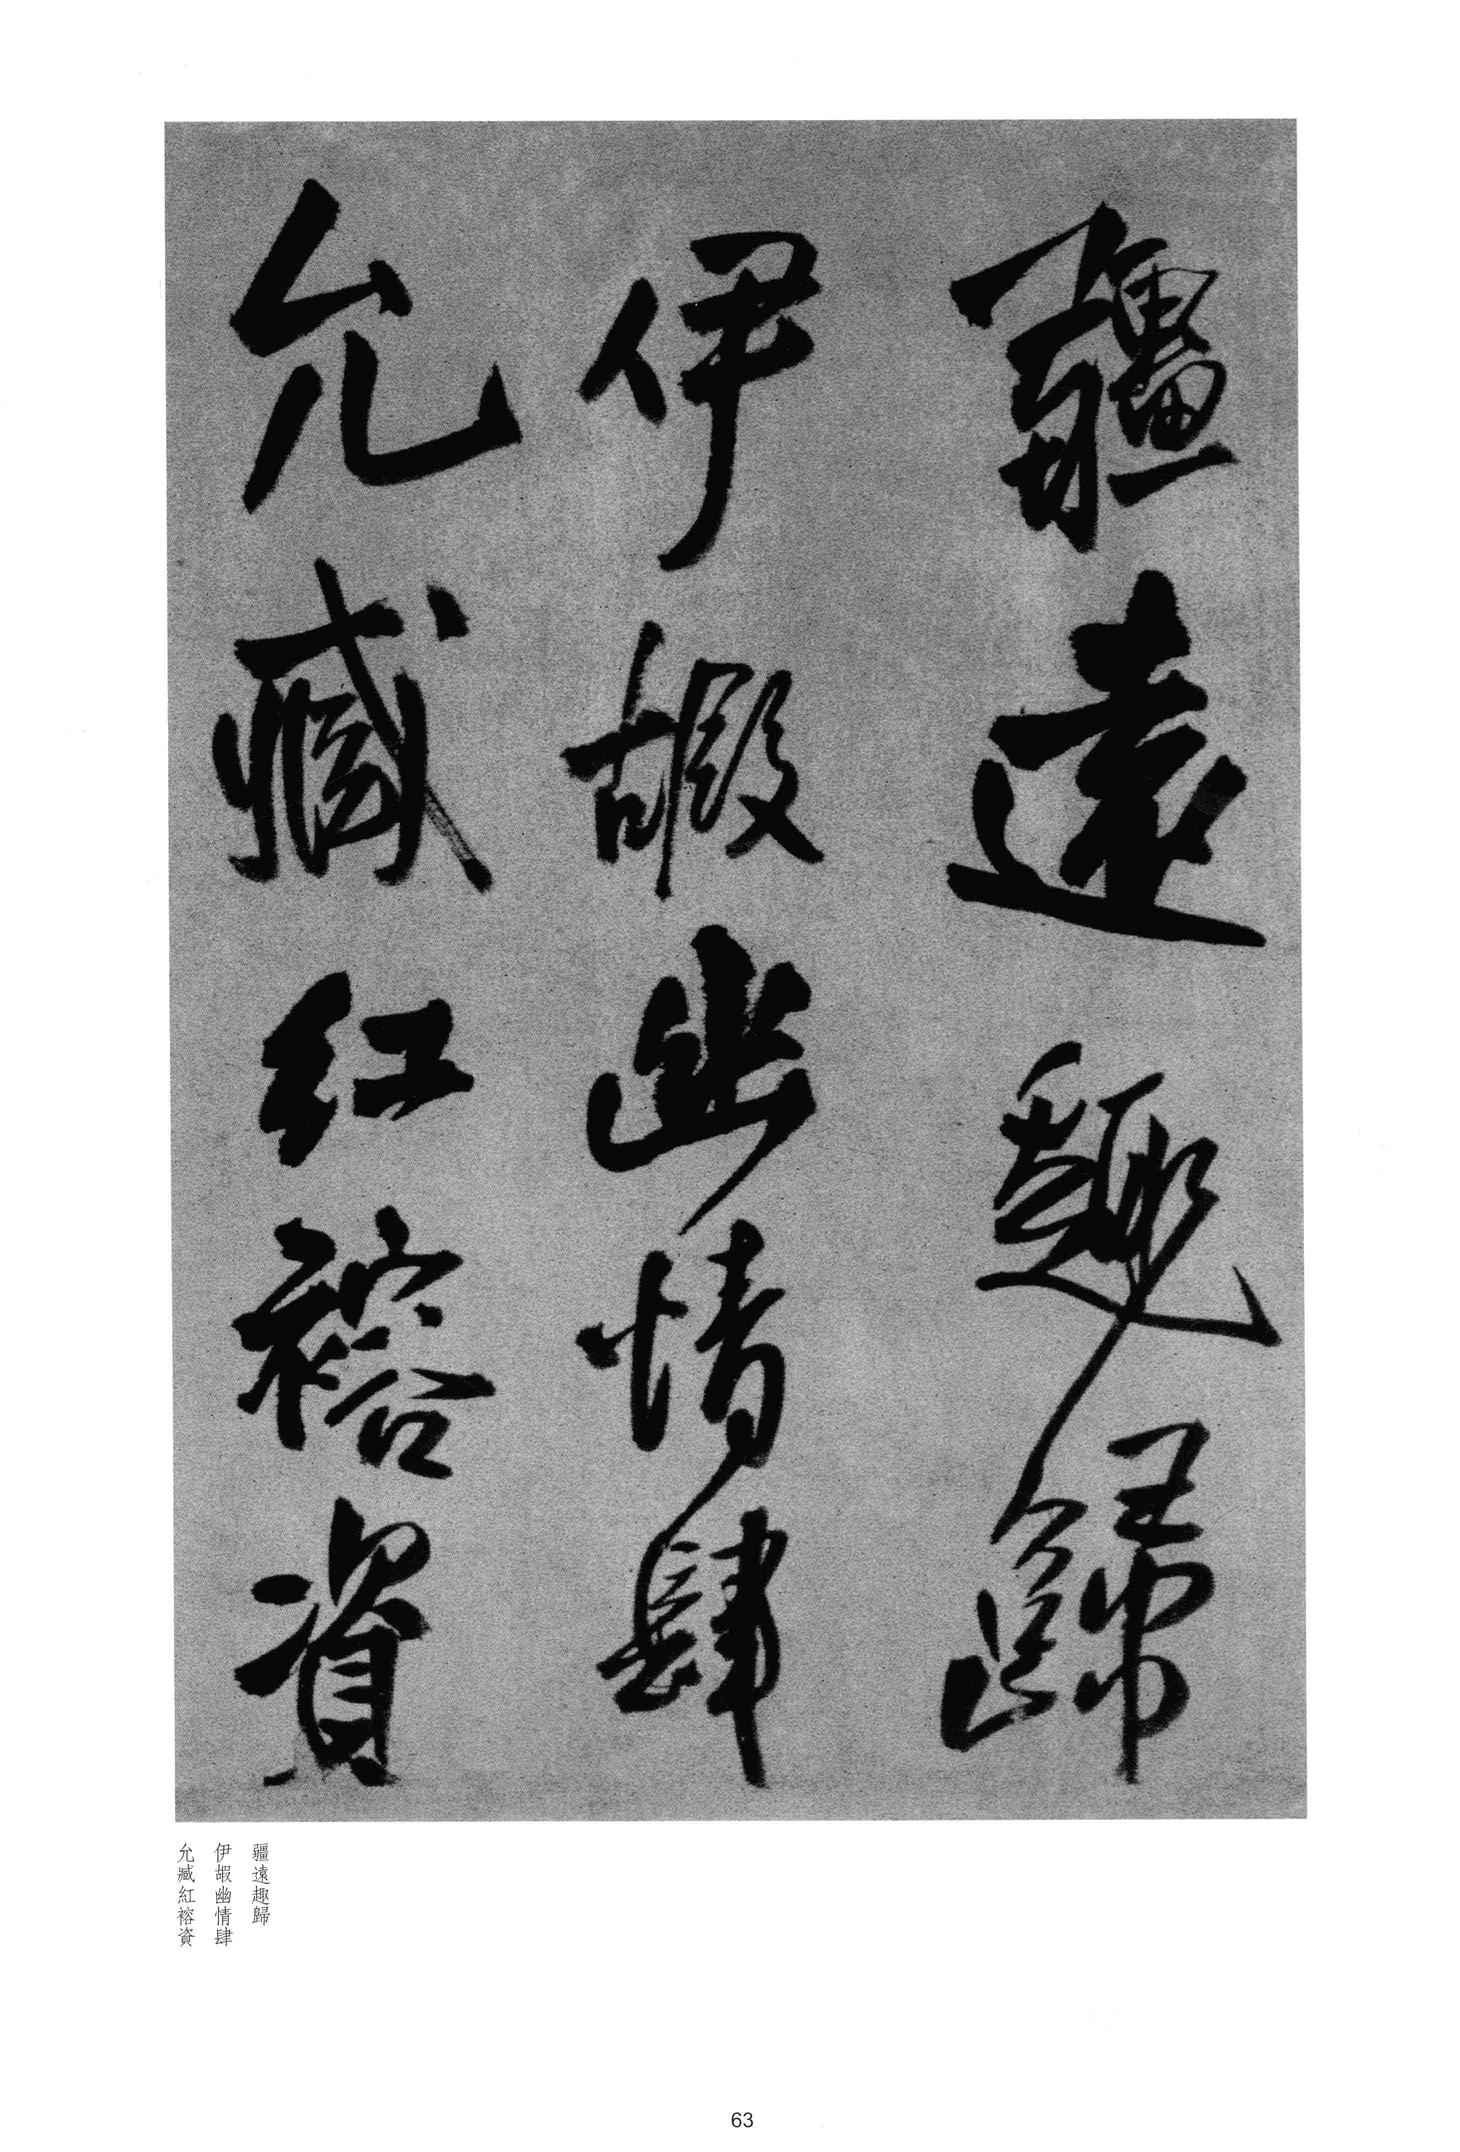 疆遠趣歸
伊嘏幽情肆
允臧紅褣資
疆遠趣歸
伊嘏幽情肆
允臧紅褣資
63